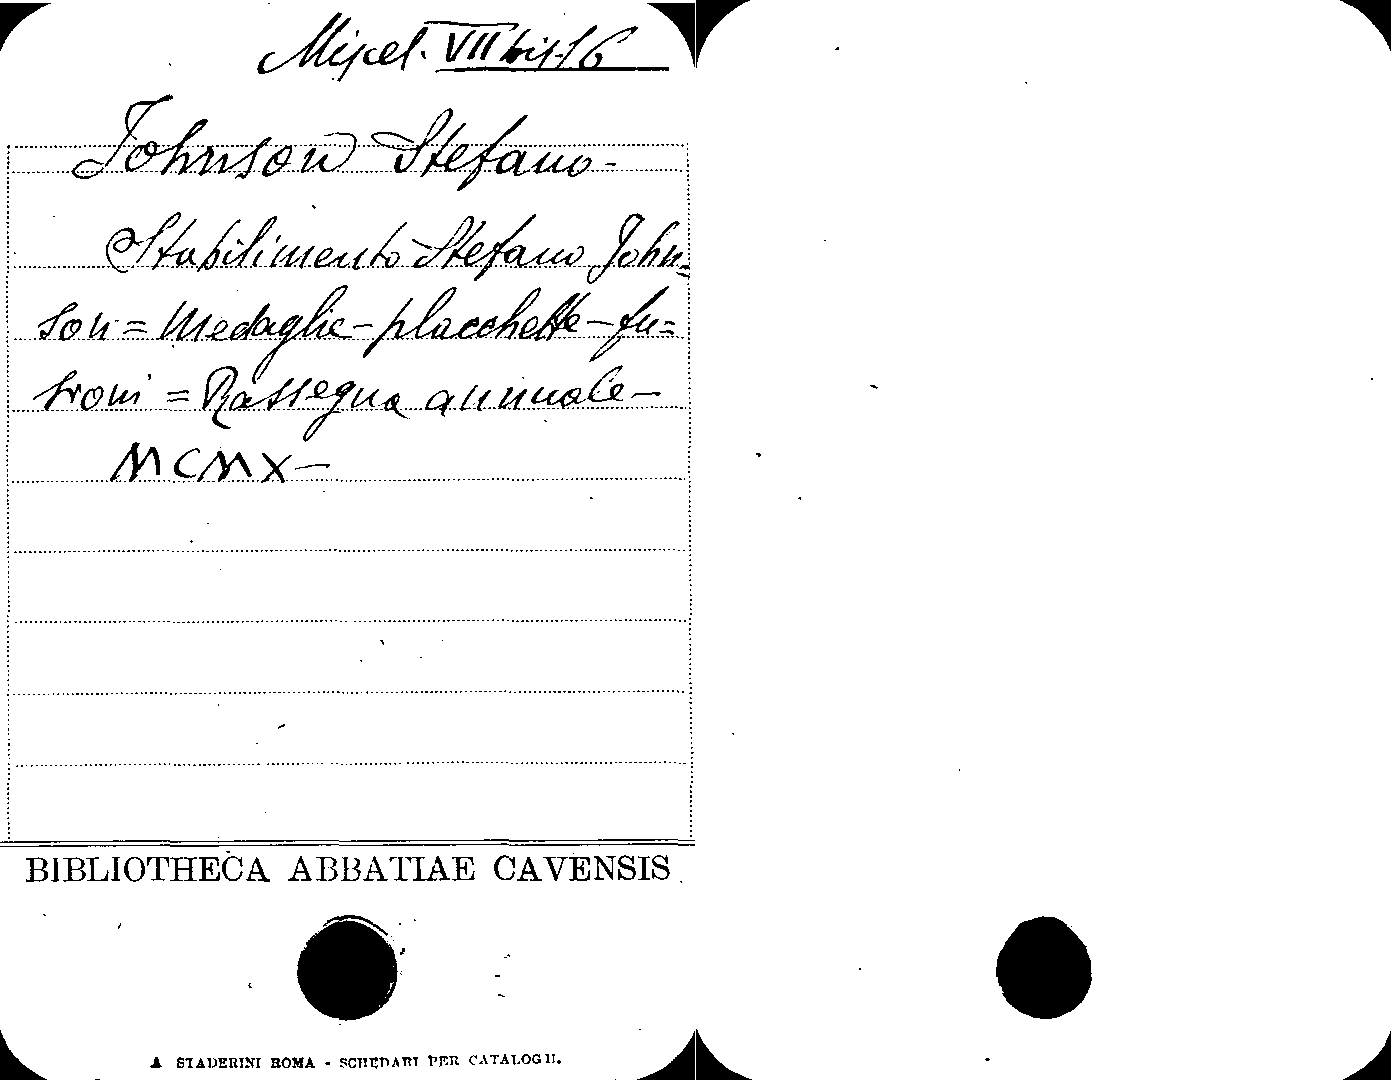 Miscel. VII bis. 16
Johnson Stefano-
Stabilimento Stefano John=
son = Medaglie - placchette - fu=
sioni = Rassegna annuale -
MCMX -
BIBLIOTHECA ABBATIAE CAVENSIS
A STADERINI ROMA - SCHEDARI PER CATALOGII.